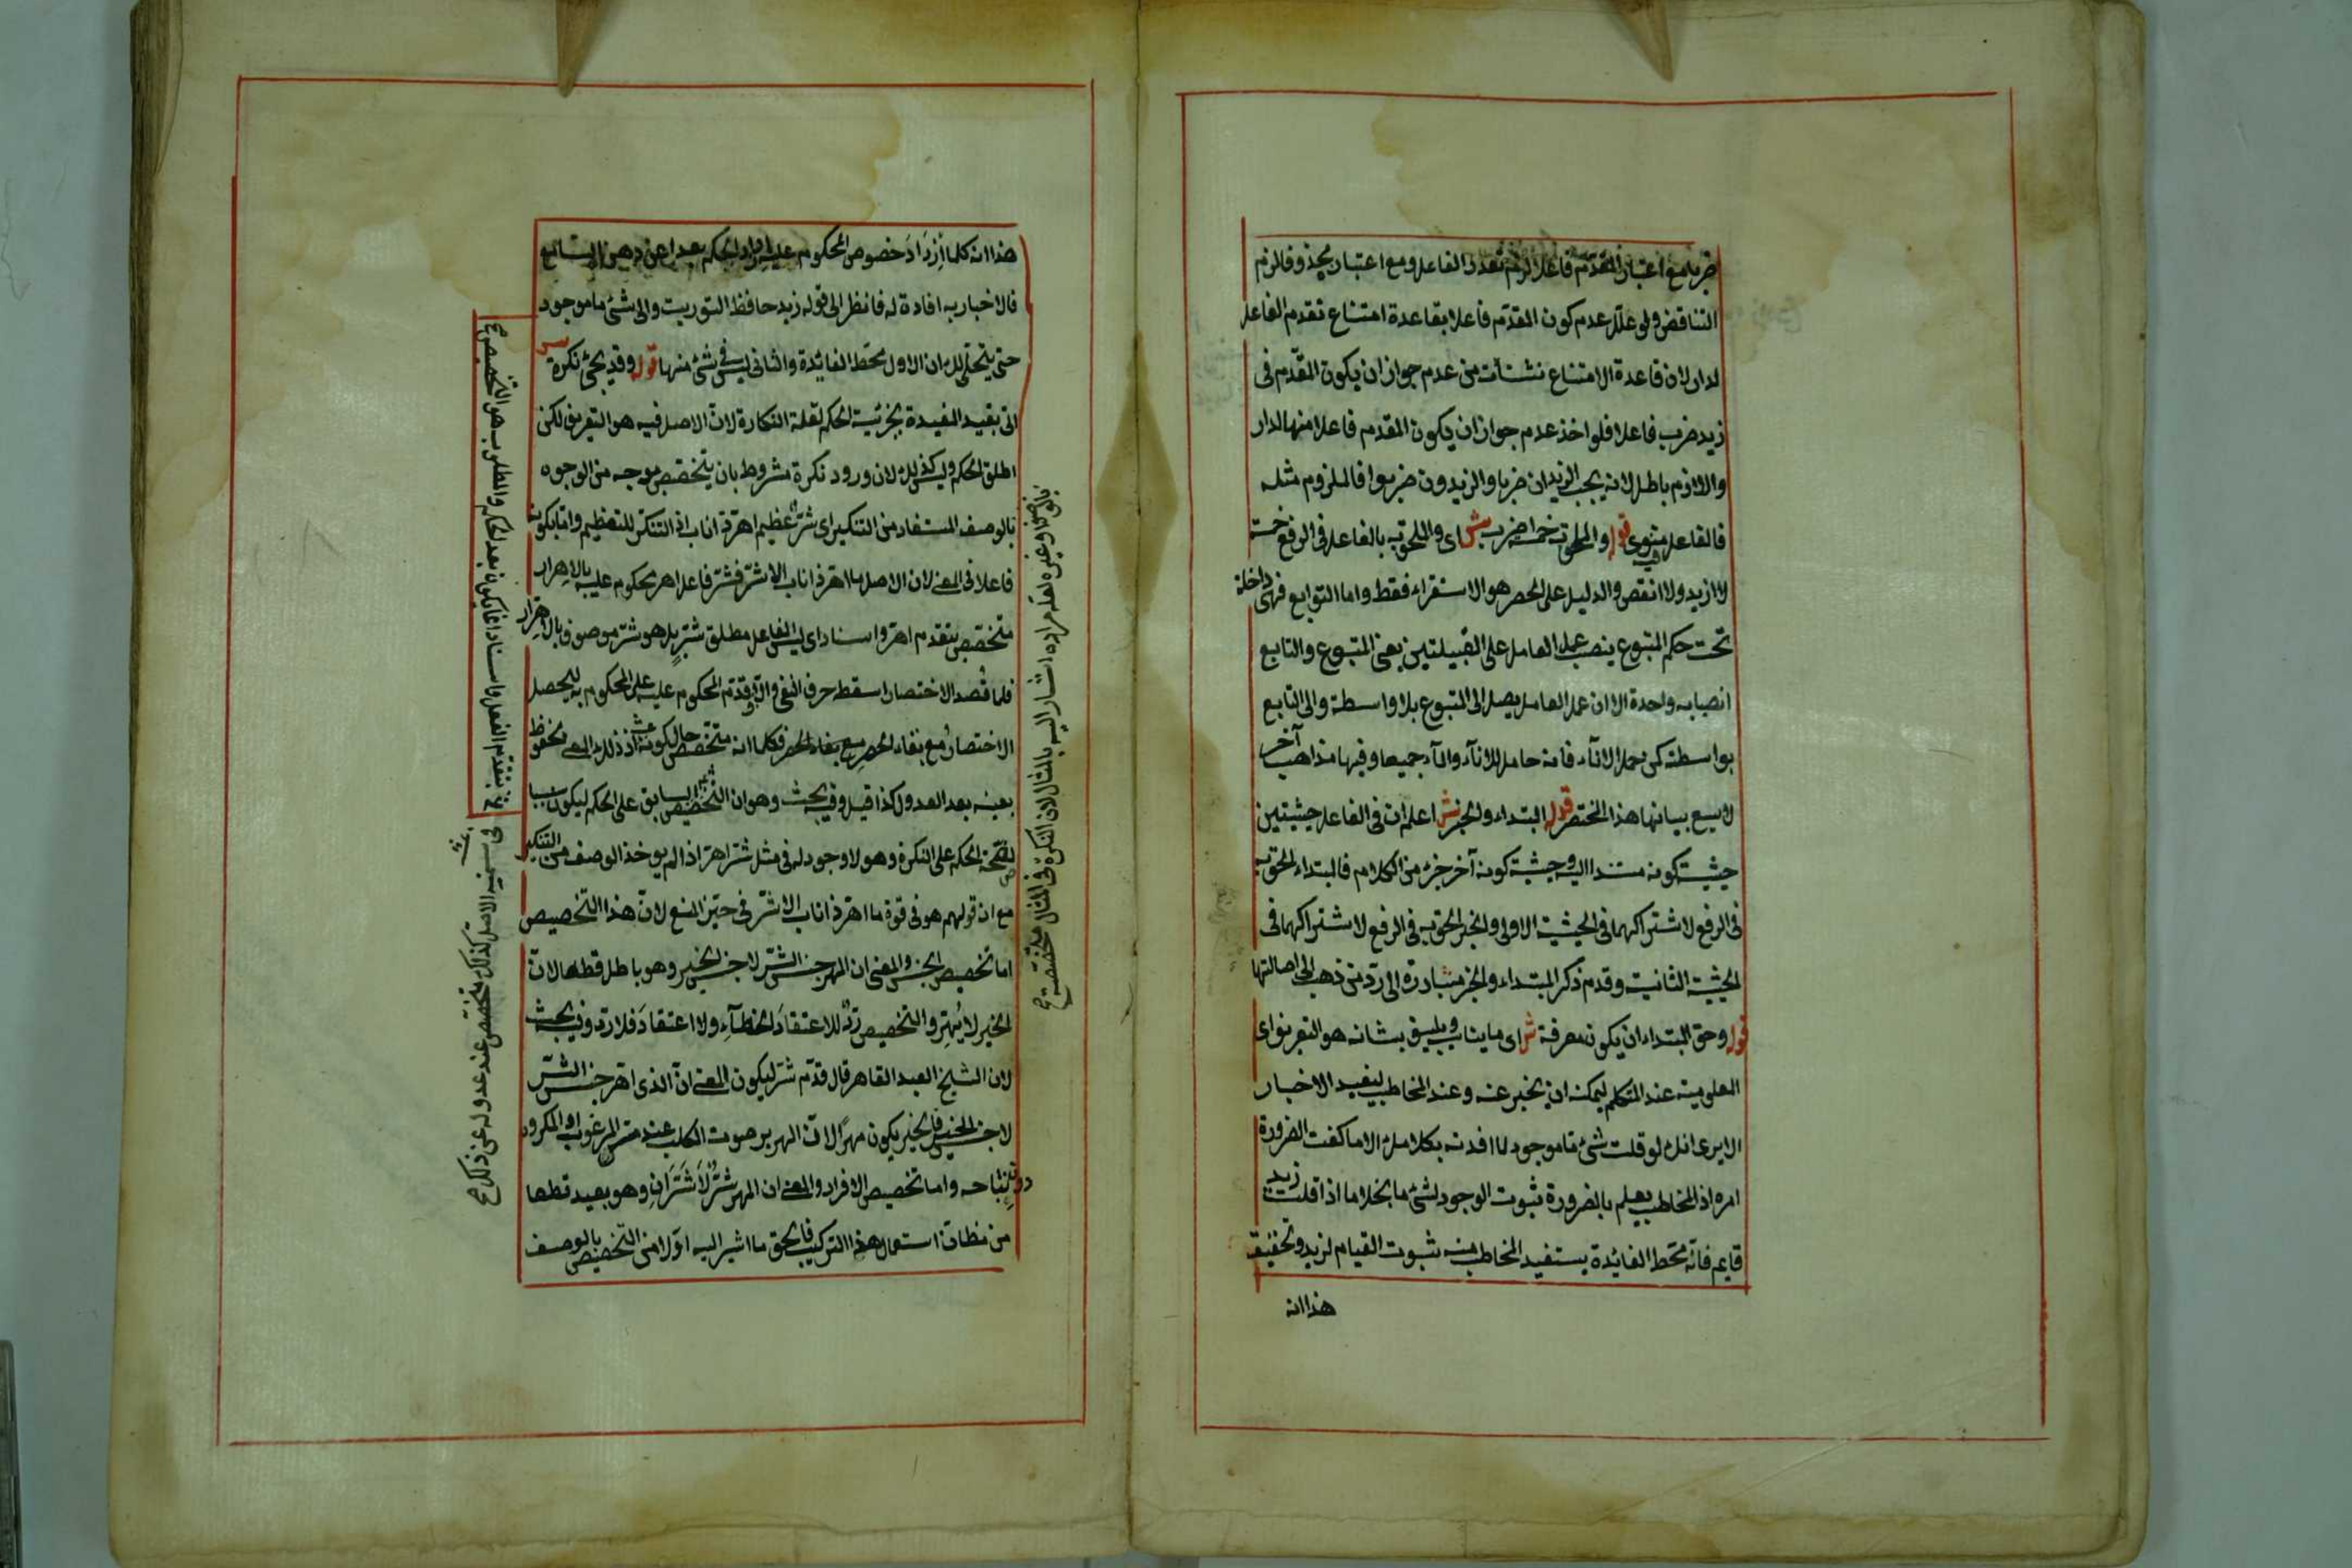 ضربا مع اعتبار المقدم فاعلا لزم تعدد الفاعل ومع اعتبار بحذوفا لزم
التناقض ولو علل عدم كون المقدم فاعلا بقاعدة امتناع تقدم الفاعل
لدار لان قاعدة الامتناع نشأت من عدم جواز ان يكون المقدم في
زيد ضرب فاعلا فلو اخذ عدم جواز ان يكون المقدم فاعلا منها لدار
واللازم باطل لانه يجب الزيدان ضربا والزيدون ضربوا فالملزوم مثله
فالفاعل منوي قوله والملحق به خمسة اضرب ش اي والملحق به بالفاعل في الرفع خمسة
لا ازيد ولا انقص والدليل على الحصر هو الاستقراء فقط واما التوابع فهي داخلة
تحت حكم المتبوع ينصب عمل العامل على القبيلتين يعني المتبوع والتابع
انصبابة واحدة الا ان عمل العامل يصل الى المتبوع بلا واسطة والى التابع
بواسطة كمن حمل الاناء فانه حامل للاناء والماء جميعا وفيها مذاهب آخر
لا يسع بيانها هذا المختصر قوله المبتداء والخبر ش اعلم ان في الفاعل حيثيتين
حيثية كونه مسندا اليه وحيثية كونه آخر جزء من الكلام فالمبتداء الحق به
في الرفع لاشتراكهما في الحيثية الاولى والخبر الحق به في الرفع لاشتراكهما في
الحيثية الثانية وقدم ذكر المبتداء والخبر مبادرة الى رد من ذهب الى اصالتها
قوله وحق المبتداء ان يكون معرفة ش اي ما يناسب ويليق بشانه هو التعريف اي
المعلومية عند المتكلم ليمكنه ان يخبر عنه وعند المخاطب ليفيد الاخبار
الا يرى انك لو قلت شئ ما موجود لما افدته بكلامك الا ما كفت الضرورة
امره اذ المخاطب يعلم بالضرورة ثبوت الوجود لشئ ما بخلاف ما اذا قلت زيد
قايم فانه محط الفائدة يستفيد المخاطب منه ثبوت القيام لزيد وتحقيق
هذا انه
هذا انه كلما ازداد خصوص المحكوم عليه ازداد الحكم بعدا عن ذهن السامع
فالاخبار به افادة له فانظر الى قوله زيد حافظ التوريت والى شئ ما موجود
حتى يتجلى لك ان الاول محط الفائدة والثاني ليس في شئ منها قوله وقد يجئ نكرة ش
اتى بقيد المفيدة بجزئية الحكم لقلة النكارة لان الاصل فيه هو التعريف لكن
اطلق الحكم وليس كذلك لان ورود نكرة مشروط بان يتخصص بوجه من الوجوه
بالوصف المستفاد من التنكير اي شر عظيم اهر ذا ناب اذ التنكر للتعظيم واما بكونه
فاعلا في المعنى لان الاصل ما اهر ذا ناب الا شر فشر فاعل اهر محكوم عليه بالاهرار
متخصص بتقدم اهر واسناده اي ليس الفاعل مطلق شر بل هو شر موصوف بالاهرار
فلما قصد الاختصار اسقط حرف النفي والا وقدم المحكوم عليه على المحكوم به ليحصل
الاختصار مع بقاء الحصر فكما انه متخصص حال كونه اذ ذلك المعنى محفوظ
بعينه بعد العدول كذا قيل وفيه بحث وهو ان التخصيص السابق على الحكم ليكون سببا
لصحة الحكم على النكرة وهو لا وجود له في مثل شر اهر اذا لم يوخذ الوصف من التنكير
مع ان قولهم هو في قوة ما اهر ذا ناب الا شر في حيز المنع لان هذا التخصيص
اما تخصيص الجنس والمعنى ان المهر جنس الشر لا جنس الخير وهو باطل قطعا لان
الخير لا يهر والتخصيص رد للاعتقاد الخطاء ولا اعتقاد فلا رد وفيه بحث
لان الشيخ العبد القاهر قال قدم شر ليكون المعنى ان الذي اهر جنس الشر
لا جنس الخير فالخير يكون مهرا لان الهرير صوت الكلب عند مس المرغوب او المكروه
دون نباحه واما تخصيص الافراد والمعنى ان المهر شر لا شران وهو بعيد قطعا
من مظان استعمال هذا التركيب فالحق ما اشير اليه اولا من التخصيص بالوصف